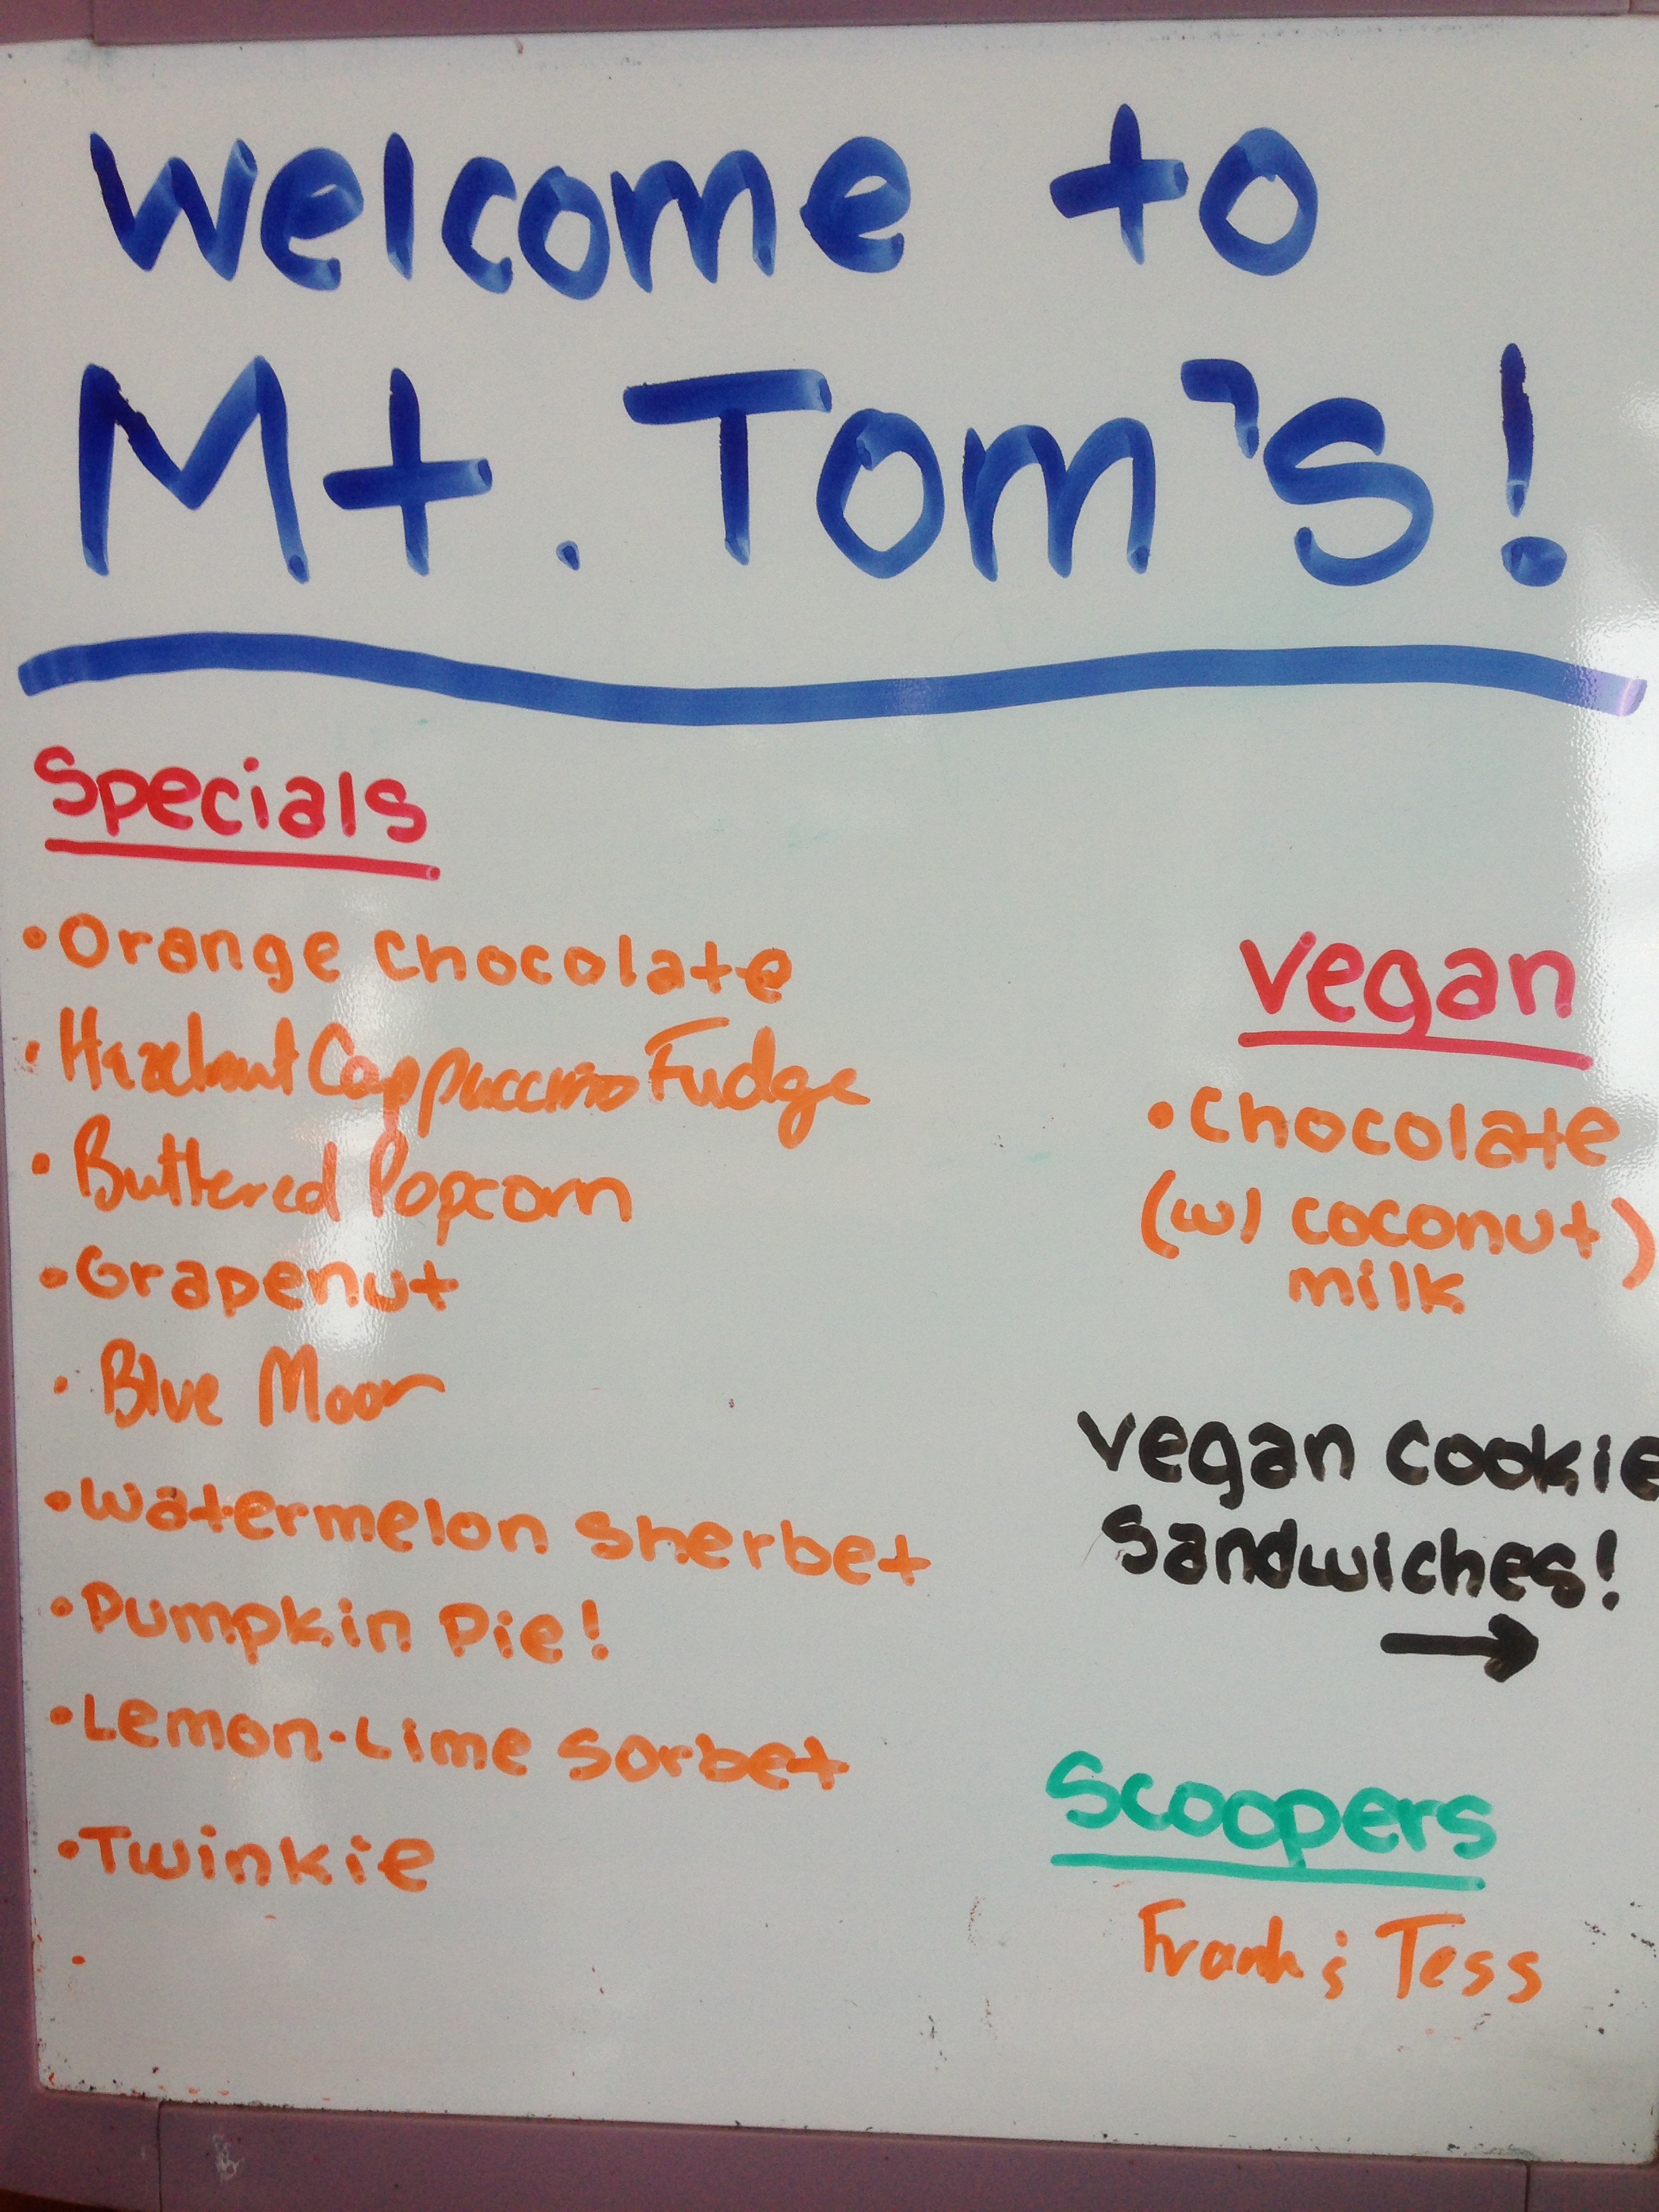 Welcome to
Mt. Tom's!
Specials
•Orange Chocolate
•Hazelnut Cappuccino Fudge
•Buttered Popcorn
•Grapenut
•Blue Moon
•Watermelon Sherbet
•Pumpkin Pie!
•Lemon-Lime Sorbet
•Twinkie
Vegan
•Chocolate
(w/ coconut)
milk
Vegan Cookie
Sandwiches!
→
Scoopers
Frank & Tess